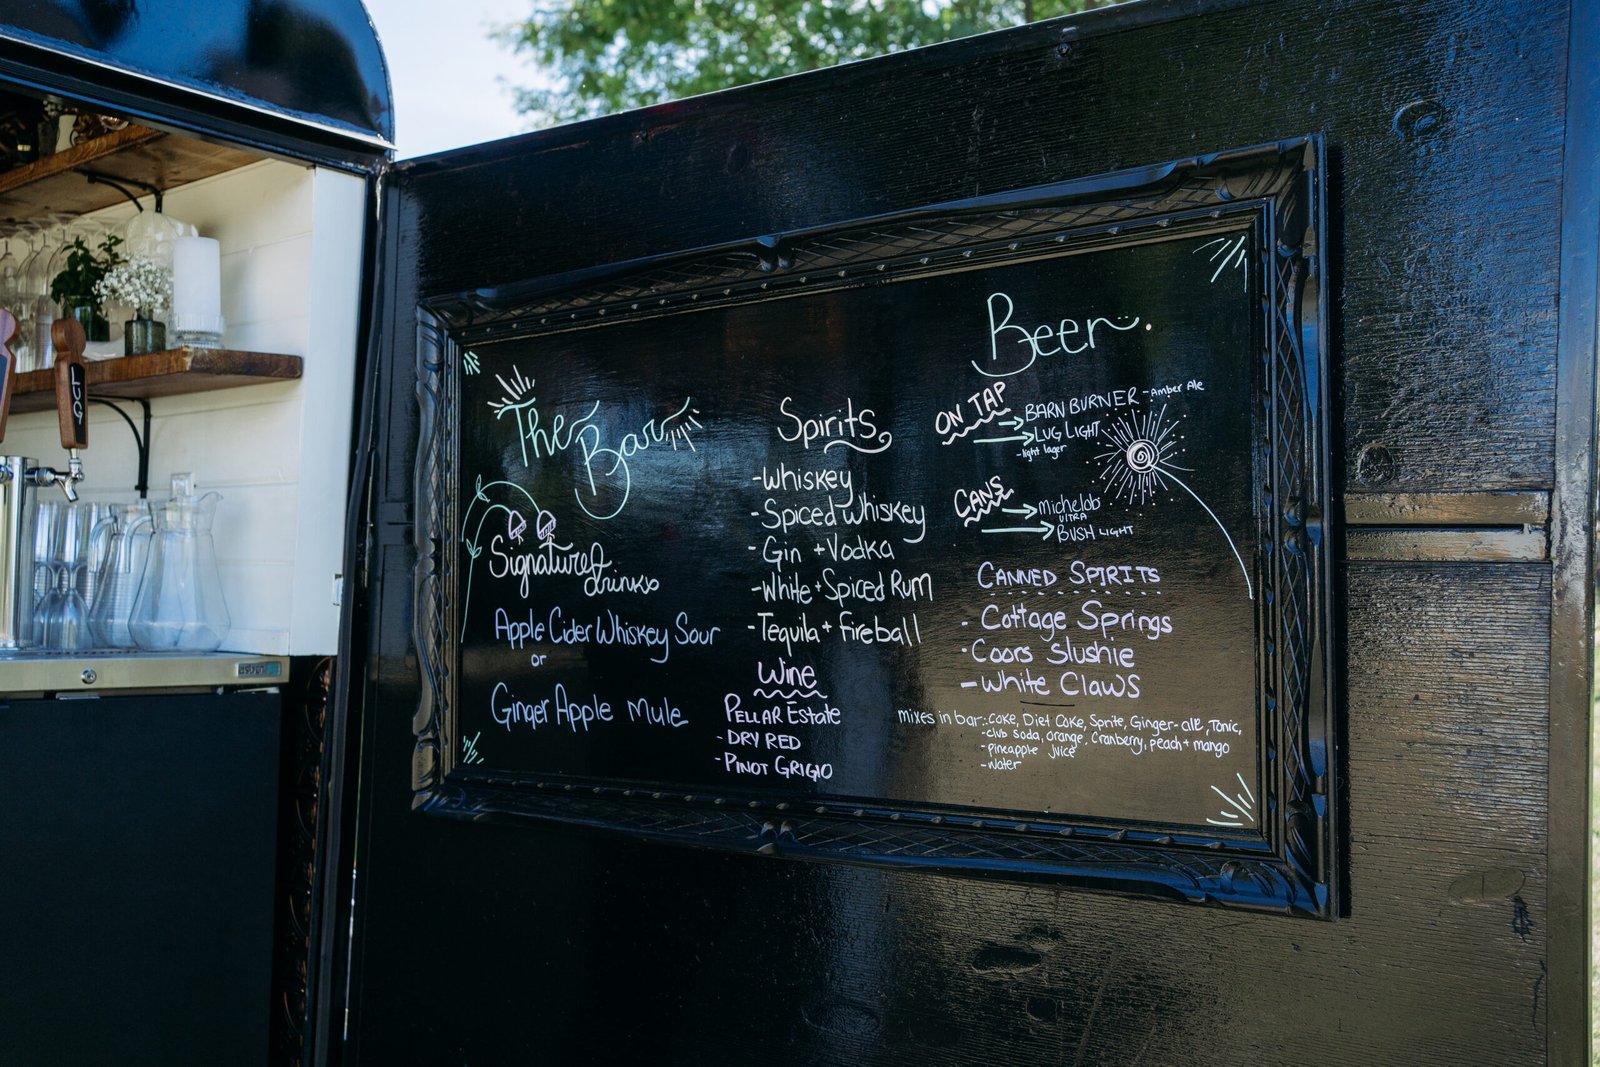 LUG
The Bar
Signature
drinks
Apple Cider Whiskey Sour
or
Ginger Apple Mule
Spirits
-Whiskey
-Spiced Whiskey
-Gin + Vodka
-White + Spiced Rum
-Tequila + Fireball
Wine
PELLAR Estate
-DRY RED
-PINOT GRIGIO
Beer
ON TAP
BARN BURNER - Amber Ale
LUG LIGHT
-light lager
CANS
michelob
ULTRA
BUSH LIGHT
CANNED SPIRITS
- Cottage Springs
- Coors Slushie
- White Claws
mixes in bar: - Coke, Diet Coke, Sprite, Ginger-ale, Tonic,
-club soda, orange, Cranberry, peach + mango
-pineapple juice
-water